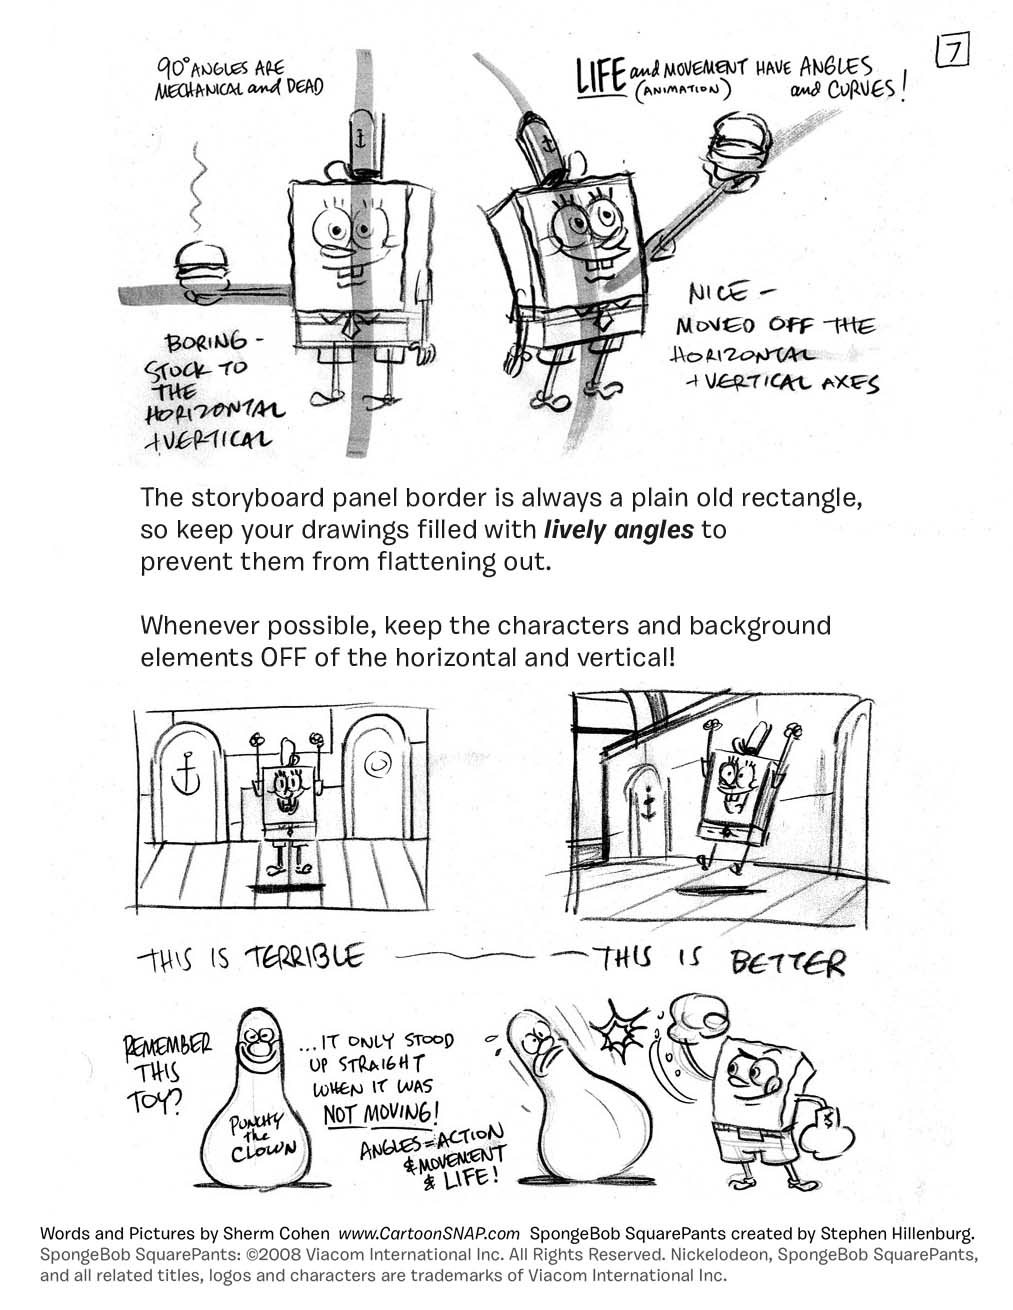 7
90° ANGLES ARE
MECHANICAL and DEAD
LIFE and MOVEMENT HAVE ANGLES
(ANIMATION) and CURVES!
BORING -
STUCK TO
THE
HORIZONTAL
+ VERTICAL
NICE -
MOVED OFF THE
HORIZONTAL
+ VERTICAL AXES
The storyboard panel border is always a plain old rectangle,
so keep your drawings filled with lively angles to
prevent them from flattening out.
Whenever possible, keep the characters and background
elements OFF of the horizontal and vertical!
THIS IS TERRIBLE
THIS IS BETTER
REMEMBER
THIS
TOY?
PUNCHY
the
CLOWN
...IT ONLY STOOD
UP STRAIGHT
WHEN IT WAS
NOT MOVING!
ANGLES = ACTION
& MOVEMENT
& LIFE!
Words and Pictures by Sherm Cohen www.CartoonSNAP.com SpongeBob SquarePants created by Stephen Hillenburg.
SpongeBob SquarePants: ©2008 Viacom International Inc. All Rights Reserved. Nickelodeon, SpongeBob SquarePants,
and all related titles, logos and characters are trademarks of Viacom International Inc.